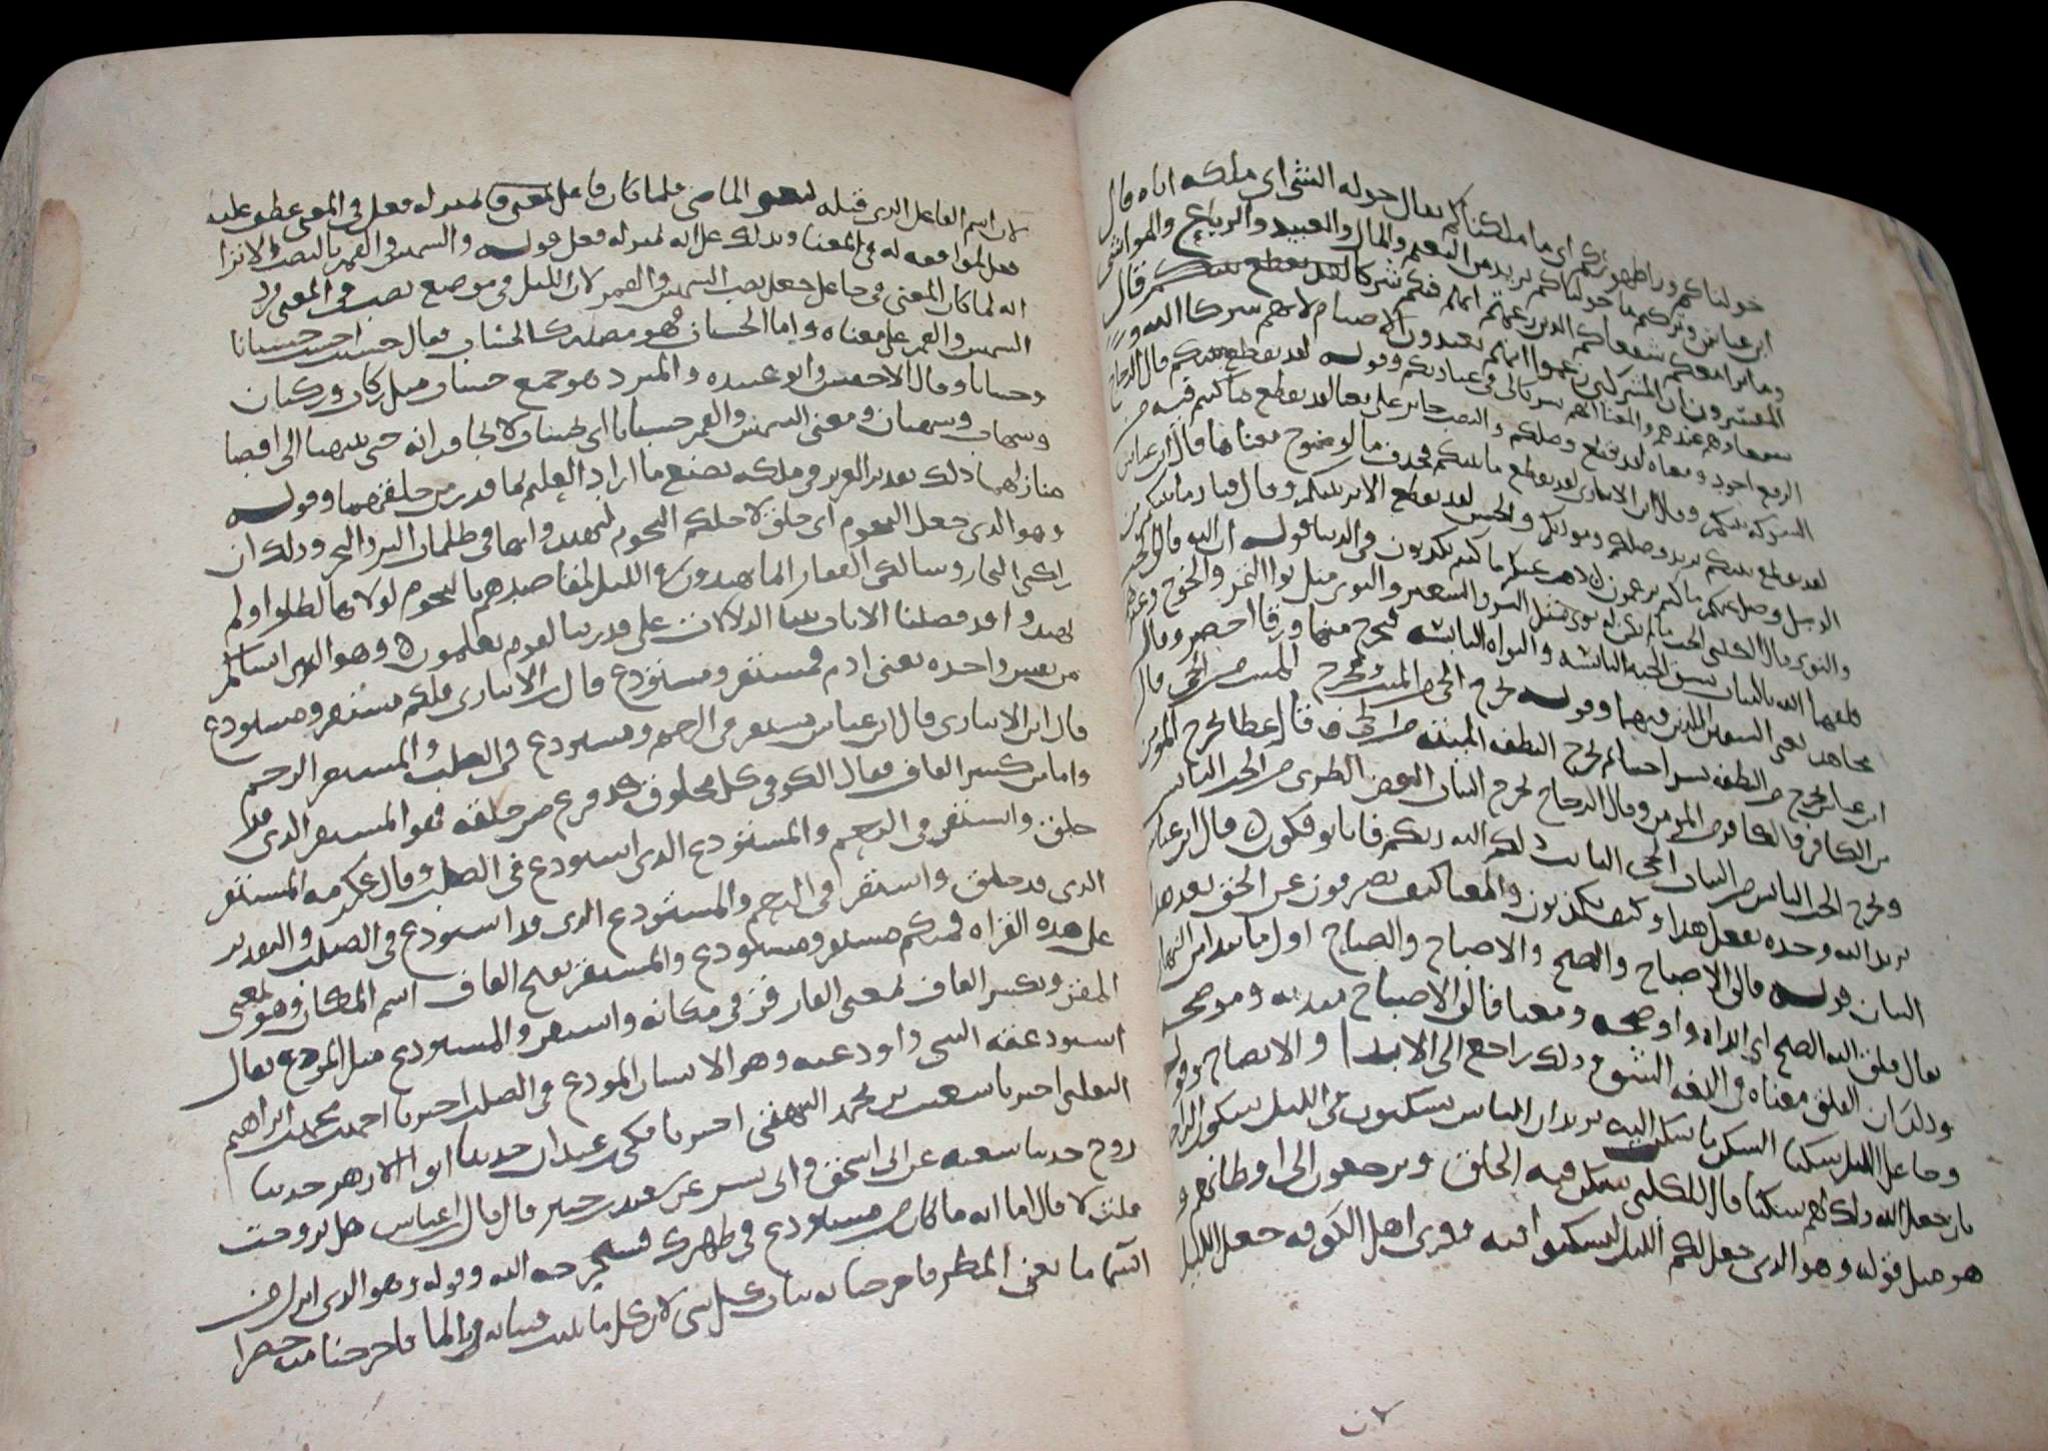 خولناكم ورا ظهوركم اى ما ملكناكم يقال خوله الشى اى ملكه اياه قال
ابن عباس وتركتم ما خولناكم يريد من النعم والمال والعبيد والرباع والمواشى
وما نرى معكم شفعاكم الذين زعمتم انهم فيكم شركا لقد تقطع بينكم قال
المفسرون ان المشركين زعموا انهم يعبدون الاصنام لانهم شركا الله و
شفعاوهم عنده والمعنا انهم شركا لى فى عبادتكم وقوله لقد تقطع بينكم قال الزجاج
الرفع اجود ومعناه لقد تقطع وصلكم والنصب جايز على معنا لقد تقطع ما كنتم فيه من
الشركه بينكم وقال ابن الانبارى لقد تقطع ما بينكم فحذف ما لوضوح معناها قال ابن عباس
لقد تقطع بينكم يريد وصلكم ومودتكم والحسن لقد تقطع الامر بينكم وقال قتاده ما بينكم من
الوصل وضل عنكم ما كنتم تزعمون تكذبون فى الدنيا قوله ان الله فالق الحب
والنوى قال الكلبى الحب ما لم يكن له نوى مثل البر والشعير والنوى مثل نوا التمر والخوخ وغيرها
فلقهما الله بالنبات يشق الحبه اليابسه والنواه اليابسه فيخرج منهما ورقا اخضر وقال
مجاهد يعنى الشقين اللذين فيهما وقوله يخرج الحى من الميت ومخرج الميت من الحى قال
ابن عباس يخرج من النطفه بشرا حيا ثم يخرج النطفه الميته من الحى وقال عطا يخرج المومن
من الكافر والكافر من المومن وقال الزجاج يخرج النبات الغض الطرى من الحب اليابس
ويخرج الحب اليابس من النبات الحى النابت ذلكم الله ربكم فانا توفكون قال ابن عباس
يريد الله وحده يفعل هذا وكيف تكذبون والمعنا كيف تصرفون عن الحق بعد هذا
البيان قوله فالق الاصباح والصبح والاصباح والصباح اول ما يبدا من النهار
يقال فلق الله الصبح اى ابداه واوضحه ومعنا فالق الاصباح مبديه وموضحه
وذلك ان الفلق معناه فى اللغه الشق وذلك راجع الى الابدا والايضاح وقوله
وجاعل الليل سكنا السكن ما سكنت اليه يريد ان الناس يسكنون فى الليل سكون الراحه
بان جعل الله ذلك لهم سكنا قال الكلبى يسكن فيه الخلق ويرجعون الى اوطانهم و
هو مثل قوله وهو الذى جعل لكم الليل لتسكنوا فيه وقرى اهل الكوفه جعل الليل
لان اسم الفاعل الذى قبله بمعنى الماضى فلما كان فاعل بمعنى فعل فى المعنى عطف عليه
فعل لموافقته له فى المعنا ويدلك على انه بمنزله فعل قوله والشمس والقمر بالنصب الا ترا
انه لما كان المعنى فى جاعل جعل نصب الشمس والقمر لان الليل فى موضع نصب فى المعنى فرد
الشمس والقمر على معناه واما الحسبان فهو مصدر كالحساب يقال حسبت احسب حسبانا
وحسابا وقال الاخفش وابو عبيده والمبرد هو جمع حساب مثل ركاب وركبان
وشهاب وشهبان ومعنى الشمس والقمر حسبانا اى بحساب لا يجاوزانه حتى ينتهيا الى اقصا
منازلهما ذلك تقدير العزيز فى ملكه يصنع ما اراد العليم بما قدر من خلقهما وقوله
وهو الذى جعل لكم النجوم اى خلق لاجلكم النجوم لتهتدوا بها فى ظلمات البر والبحر وذلك ان
راكبى البحار وسالكى القفار انما يهتدون فى الليل لمقاصدهم بالنجوم لولاها لضلوا ولم
يهتدوا قد فصلنا الايات بينا الدلالات على قدرتنا لقوم يعلمون وهو الذى انشاكم
من نفس واحده يعنى ادم فمستقر ومستودع قال ابن الانبارى فلكم مستقر ومستودع
قال ابن الانبارى قال ابن عباس مستقر فى الرحم ومستودع فى الصلب والمستقر الرحم
واما من كسر القاف فقال الكوفى كل مخلوق قد فرغ من خلقه فهو المستقر الذى قد
خلق واستقر فى الرحم والمستودع الذى استودع فى الصلب وقال عكرمه المستقر
الذى قد خلق واستقر فى الرحم والمستودع الذى قد استودع فى الصلب والتقدير
على هذه القراه فمنكم مستقر ومستودع والمستقر بفتح القاف اسم المكان وهو بمعنى
المقر وبكسر القاف بمعنى القار قر فى مكانه واستقر والمستودع مثل المودع يقال
استودعته الشى واودعته وهو الانسان المودع فى الصلب اخبرنا احمد بن محمد بن ابراهيم
الثعلبى اخبرنا شعيب بن محمد البيهقى اخبرنا مكى بن عبدان حدثنا ابو الازهر حدثنا
روح حدثنا شعبه عن ابى اسحق وابى بشر عن سعيد بن جبير قال قال ابن عباس هل تزوجت
قلت لا قال اما انه ما كان من مستودع فى ظهرك فسيخرجه الله وقوله وهو الذى انزل من
السما ما يعنى المطر فاخرجنا به نبات كل شى لان كل ما ينبت فنباته بالما فاخرجنا منه خضرا